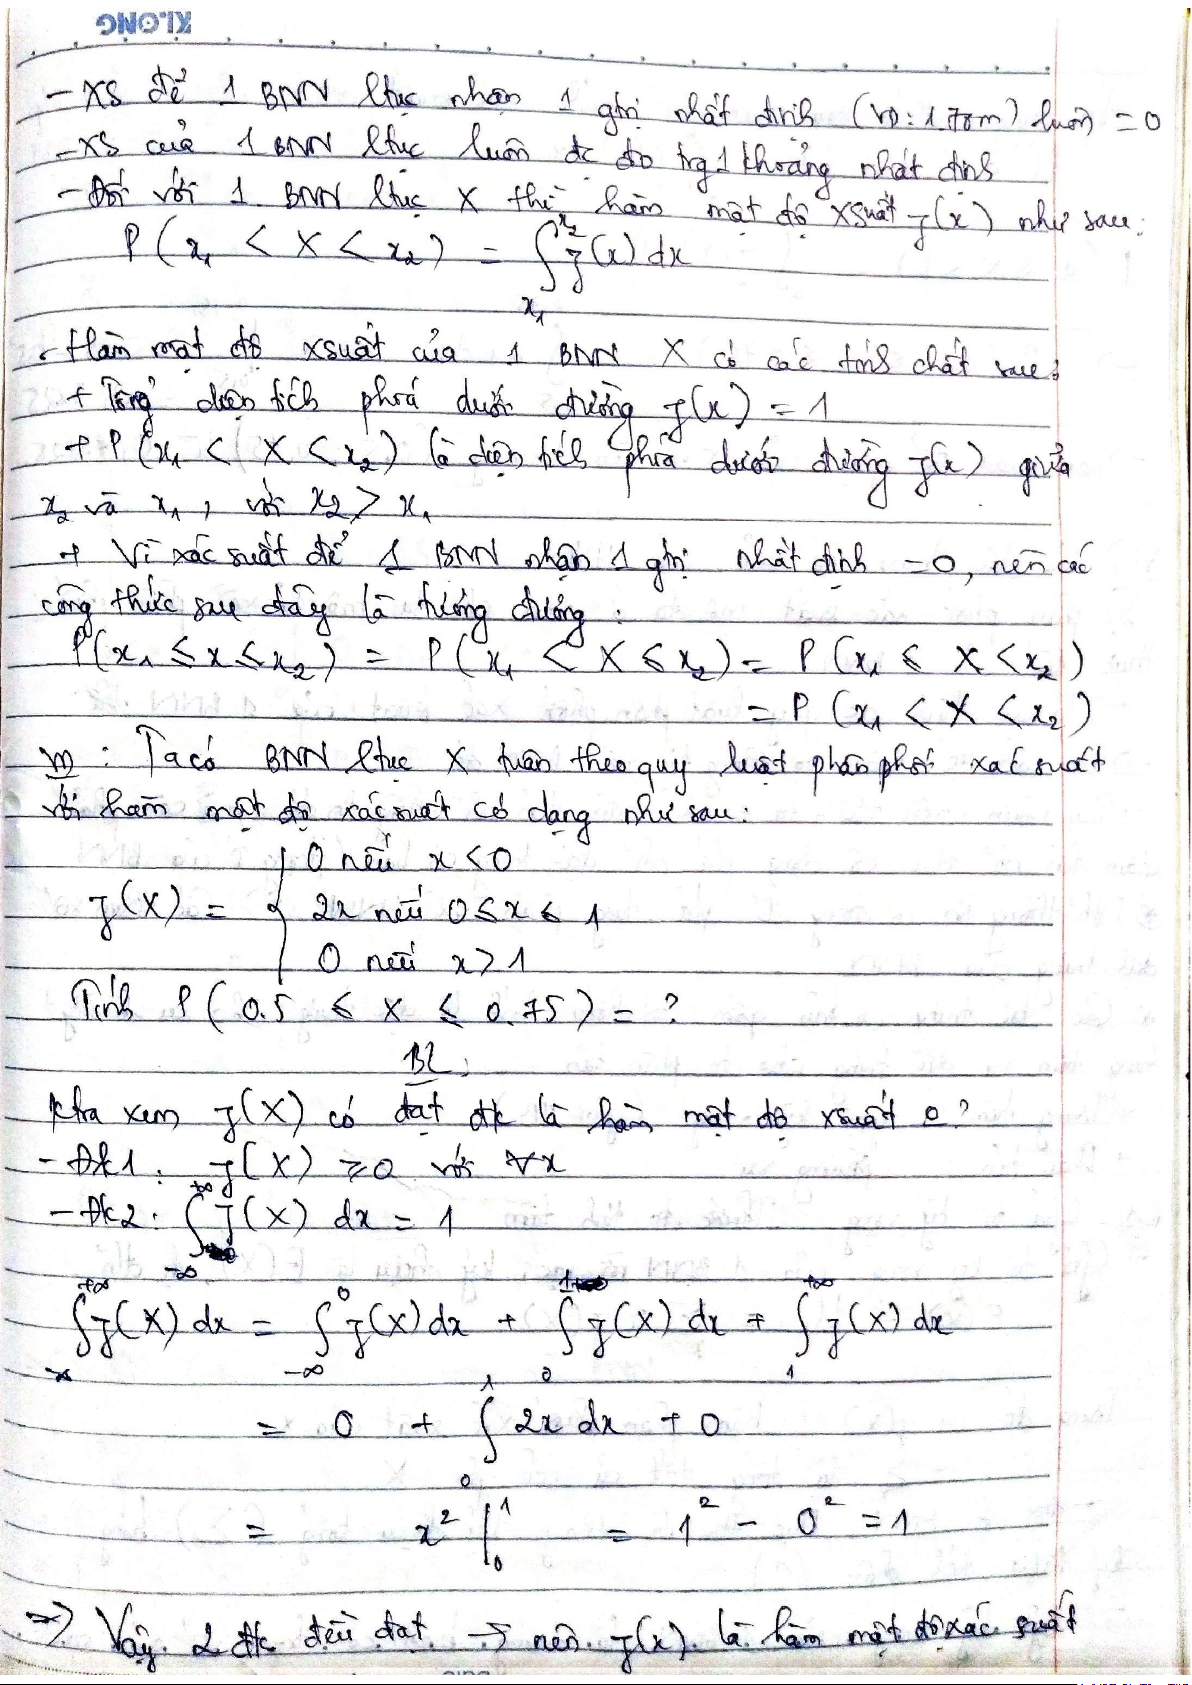 KLONG
- XS để 1 BNN ltục nhận 1 gtrị nhất định (VD: 1.78m) luôn = 0
- XS của 1 BNN ltục luôn đc đo trg 1 khoảng nhất định
- Đối với 1 BNN ltục X thì hàm mật độ xsuất f(x) như sau:
P(x₁ < X < x₂) = ∫_{x₁}^{x₂} f(x) dx
- Hàm mật độ xsuất của 1 BNN X có các tính chất sau:
+ Tổng diện tích phía dưới đường f(x) = 1
+ P(x₁ < X < x₂) là diện tích phía dưới đường f(x) giữa
x₂ và x₁, với x₂ > x₁
+ Vì xác suất để 1 BNN nhận 1 gtrị nhất định = 0, nên các
công thức sau đây là tương đương:
P(x₁ ≤ x ≤ x₂) = P(x₁ < X ≤ x₂) = P(x₁ ≤ X < x₂)
= P(x₁ < X < x₂)
VD: Ta có BNN ltục X tuân theo quy luật phân phối xác suất
với hàm mật độ xác suất có dạng như sau:
0 nếu x < 0
f(X) = { 2x nếu 0 ≤ x ≤ 1
0 nếu x > 1
Tính P(0.5 ≤ X ≤ 0.75) = ?
BL:
Ktra xem f(X) có đạt đk là hàm mật độ xsuất o?
- Đk1: f(X) ≥ 0 với ∀x
- Đk2: ∫_{-∞}^{+∞} f(X) dx = 1
∫_{-∞}^{+∞} f(X) dx = ∫_{-∞}^{0} f(X) dx + ∫_{0}^{1} f(X) dx + ∫_{1}^{+∞} f(X) dx
= 0 + ∫_{0}^{1} 2x dx + 0
= x² |₀¹ = 1² - 0² = 1
=> Vậy 2 đk đều đạt → nên f(x) là hàm mật độ xác suất